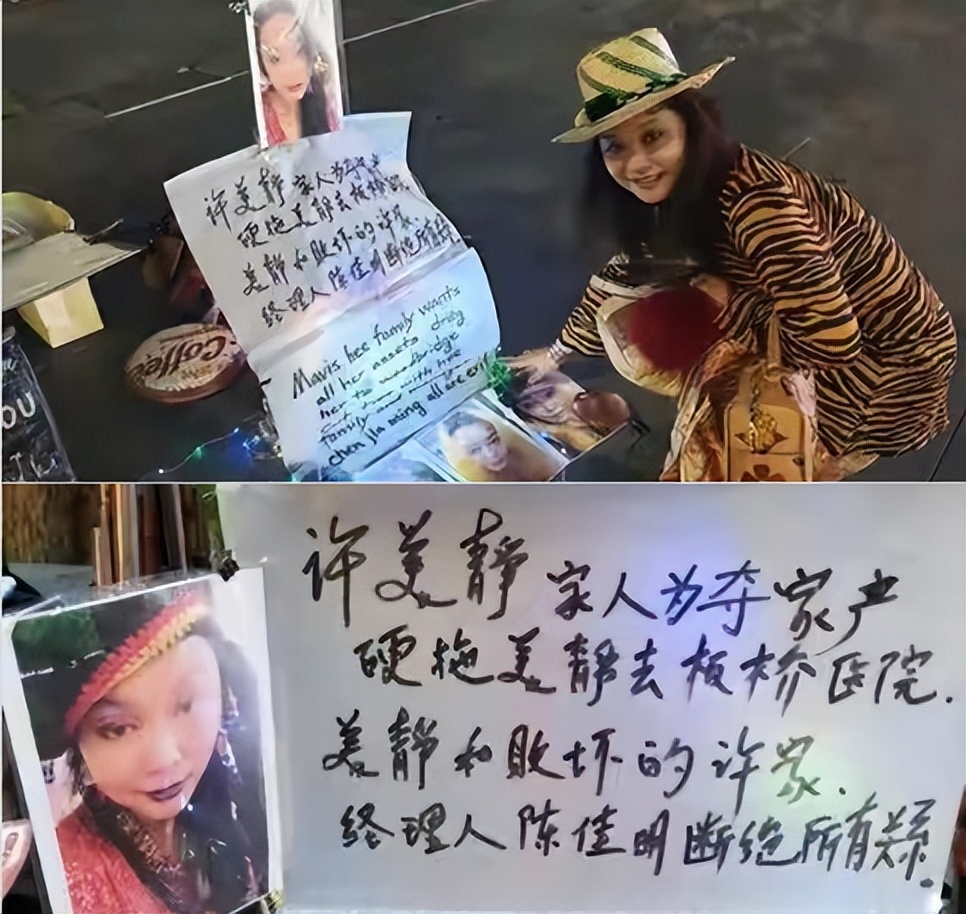 许美静 家人为夺家产
硬拖美静去板桥
美静和败坏的许家.
终理人陈佳明断绝所有
Mavis hee family wants
all her assets drag
her to woodbridge
with hee
family and
chen jia ming all are evil
Coffee
OU
许美静 家人为夺家产
硬拖美静去板桥医院.
美静和败坏的许家.
终理人陈佳明断绝所有关系.